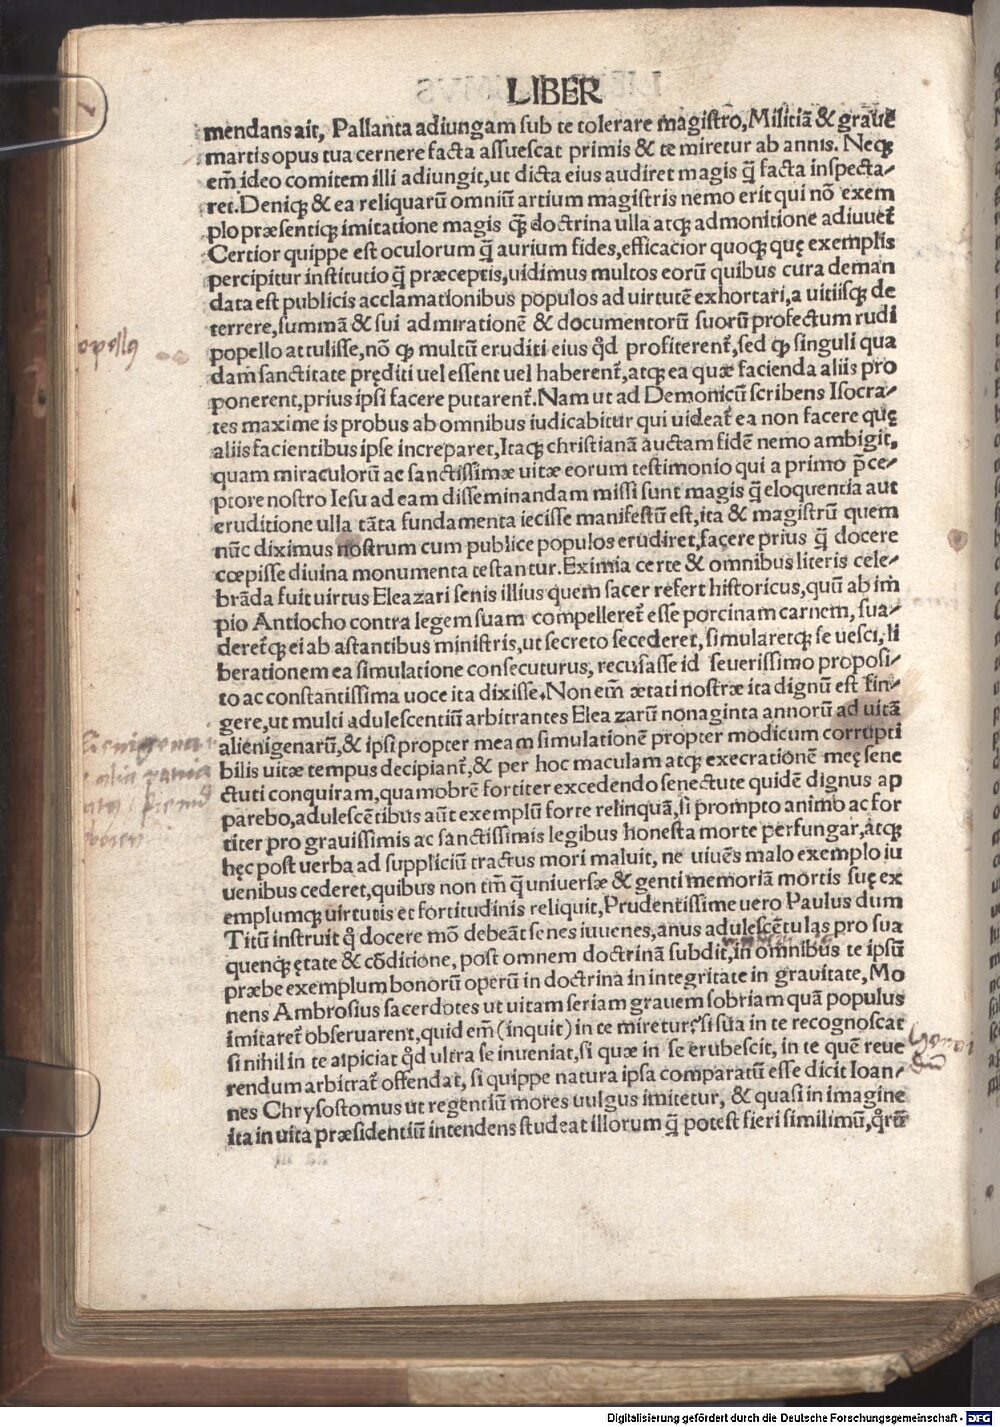 LIBER
mendans ait, Pallanta adiungam sub te tolerare magistro, Militiā & grauē
martis opus tua cernere facta assuescat primis & te miretur ab annis. Neqꝫ
em̄ ideo comitem illi adiungit, ut dicta eius audiret magis q̄ facta inspecta⸗
ret. Deniqꝫ & ea reliquarū omniū artium magistris nemo erit qui nō exem
plo præsentiqꝫ imitatione magis qꝫ̄ doctrina ulla atqꝫ admonitione adiuuet̄
Certior quippe est oculorum q̄ aurium fides, efficacior quoqꝫ quę exemplis
percipitur institutio q̄ præceptis, uidimus multos eorū quibus cura deman
data est publicis acclamationibus populos ad uirtutē exhortari, a uitiisqꝫ de
terrere, summā & sui admirationē & documentorū suorū profectum rudi
popello attulisse, nō qꝫ multū eruditi eius qd̄ profiterent̄, sed qꝫ singuli qua
dam sanctitate pręditi uel essent uel haberent̄, atqꝫ ea quæ facienda aliis pro
ponerent, prius ipsi facere putarent̄. Nam ut ad Demonicū scribens Isocra⸗
tes maxime is probus ab omnibus iudicabitur qui uideat̄ ea non facere quę
aliis facientibus ipse increparet, Itaqꝫ christianā auctam fidē nemo ambigit,
quam miraculorū ac sanctissimæ uitæ eorum testimonio qui a primo p̄ce⸗
ptore nostro Iesu ad eam disseminandam missi sunt magis q̄ eloquentia aut
eruditione ulla tāta fundamenta iecisse manifestū est, ita & magistrū quem
nūc diximus nostrum cum publice populos erudiret, facere prius q̄ docere
cœpisse diuina monumenta testantur. Eximia certe & omnibus literis cele⸗
brāda fuit uirtus Eleazari senis illius quem sacer refert historicus, quū ab im̄
pio Antiocho contra legem suam compelleret̄ esse porcinam carnem, sua⸗
deret̄qꝫ ei ab astantibus ministris, ut secreto secederet, simularetqꝫ se uesci, li
berationem ea simulatione consecuturus, recusasse id seuerissimo proposi⸗
to ac constantissima uoce ita dixisse. Non em̄ ætati nostræ ita dignū est fin⸗
gere, ut multi adulescentiū arbitrantes Eleazarū nonaginta annorū ad uitā
alienigenarū, & ipsi propter meam simulationē propter modicum corrupti
bilis uitæ tempus decipiant̄, & per hoc maculam atqꝫ execrationē meę sene
ctuti conquiram, quamobrē fortiter excedendo senectute quidē dignus ap
parebo, adulescētibus aūt exemplū forte relinquā, si prompto animo ac for
titer pro grauissimis ac sanctissimis legibus honesta morte perfungar, atqꝫ
hęc post uerba ad suppliciū tractus mori maluit, ne uiuēs malo exemplo iu
uenibus cederet, quibus non tm̄ q̄ uniuersæ & genti memoriā mortis suę ex
emplumqꝫ uirtutis et fortitudinis reliquit, Prudentissime uero Paulus dum
Titū instruit q̊ docere mō debeāt senes iuuenes, anus adulescētulas pro sua
quenqꝫ ętate & cōditione, post omnem doctrinā subdit, in omnibus te ipsū
præbe exemplum bonorū operū in doctrina in integritate in grauitate, Mo
nens Ambrosius sacerdotes ut uitam seriam grauem sobriam quā populus
imitaret̄ obseruarent, quid em̄ (inquit) in te miretur? si sua in te recognoscat
si nihil in te aspiciat qd̄ ultra se inueniat, si quæ in se erubescit, in te quē reue
rendum arbitrat̄ offendat, si quippe natura ipsa comparatū esse dicit Ioan⸗
nes Chrysostomus ut regentiū mores uulgus imitetur, & quasi in imagine
ita in uita præsidentiū intendens studeat illorum q̄ potest fieri similimū, qr̄ū
opellꝰ
Digitalisierung gefördert durch die Deutsche Forschungsgemeinschaft - DFG